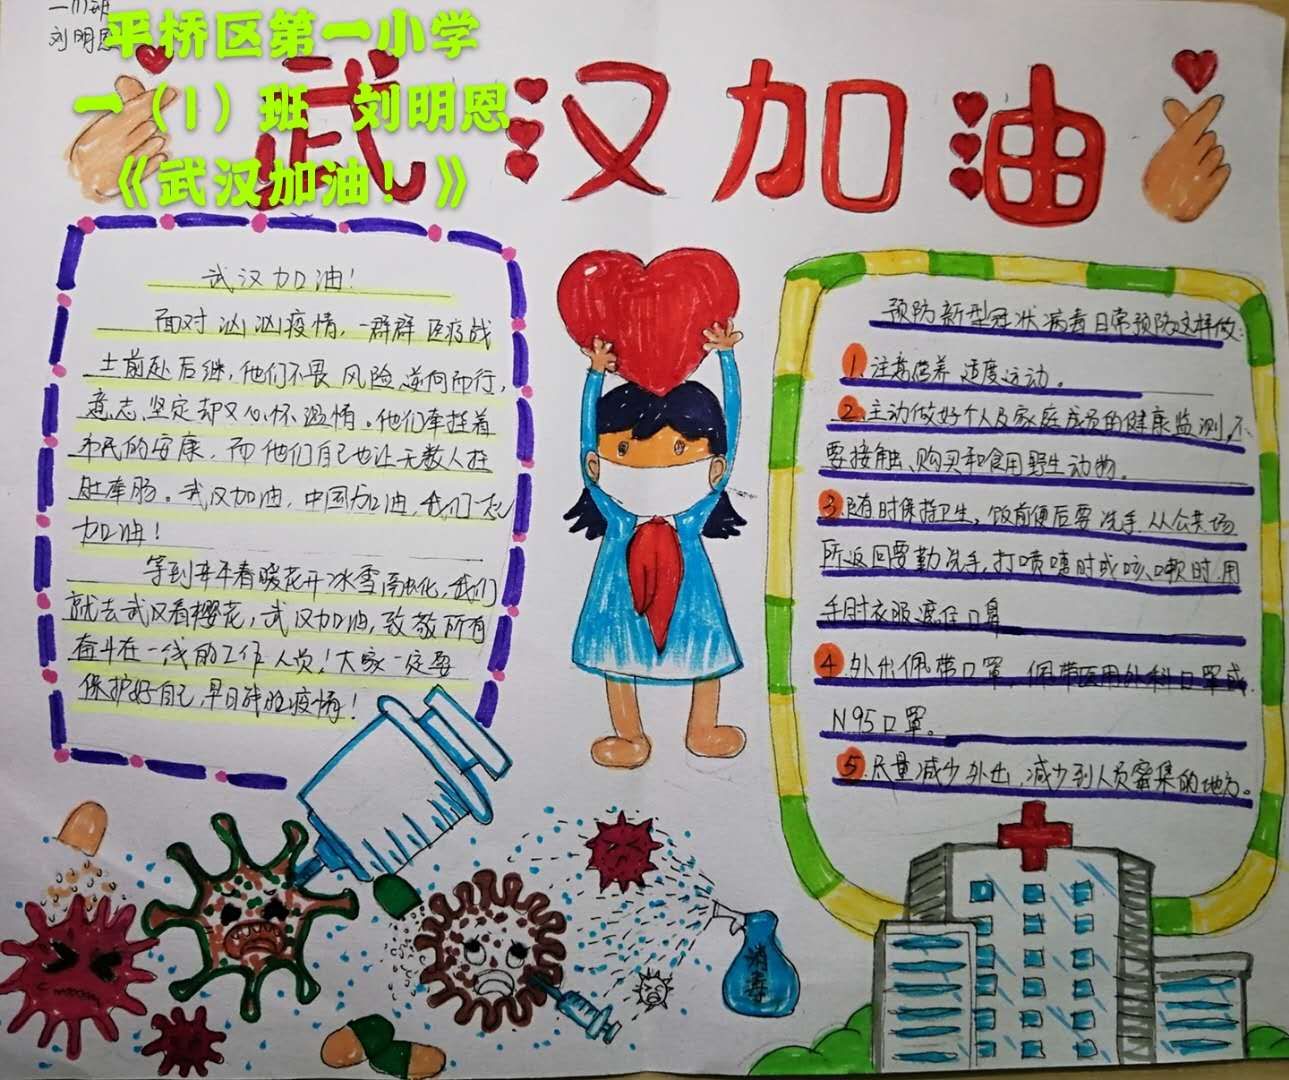 一(1)班
刘明恩
平桥区第一小学
一（1）班 刘明恩
《武汉加油！》
武汉加油
武汉加油!
面对汹汹疫情,一群群医疗战
士前赴后继,他们不畏风险,逆向而行,
意志坚定却又心怀温情。他们牵挂着
市民的安康,而他们自己也让无数人挂
肚牵肠。武汉加油,中国加油,我们一起
加油!
等到来年春暖花开冰雪融化,我们
就去武汉看樱花,武汉加油,致敬所有
奋斗在一线的工作人员!大家一定要
保护好自己,早日战胜疫情!
预防新型冠状病毒日常预防这样做:
1.注意营养 适度运动。
2.主动做好个人及家庭成员的健康监测,不
要接触、购买和食用野生动物。
3.随时保持卫生。饭前便后要洗手.从公共场
所返回要勤洗手,打喷嚏时或咳嗽时,用
手肘衣服遮住口鼻
4.外出佩带口罩,佩带医用外科口罩或
N95口罩。
5.尽量减少外出,减少到人员密集的地方。
消毒